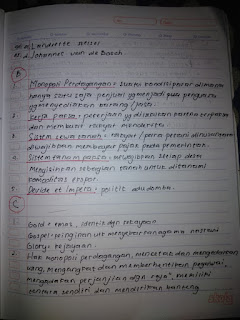 a. Landrente Stelsel
d. Johannes van de Bosch
B
1. Monopoli Perdagangan = suatu kondisi pasar dimana
hanya satu saja penjual yg menjadi pusat penguasa
yg menyediakan barang/jasa.
2. Kerja paksa = pekerjaan yg dilakukan karna terpaksa
dan membuat rakyat menderita.
3. Sistem sewa tanah = rakyat/para petani
diwajibkan membayar pajak pada pemerintah.
4. Sistem tanam paksa = setiap desa
Menyisihkan sebagian tanah untuk ditanami
komoditas ekspor
5. Devide et Impera = politik adu domba.
C
1.
Gold = emas, identik dgn kekayaan
Gospel = keinginan utk menyebarkan agama nasrani
Glory = kejayaan.
2. Hak monopoli perdagangan, mencetak dan mengedarkan
uang, mengangkat dan memberhentikan pegawai,
mengadakan perjanjian dgn raja", memiliki
tentara sendiri dan mendirikan benteng.